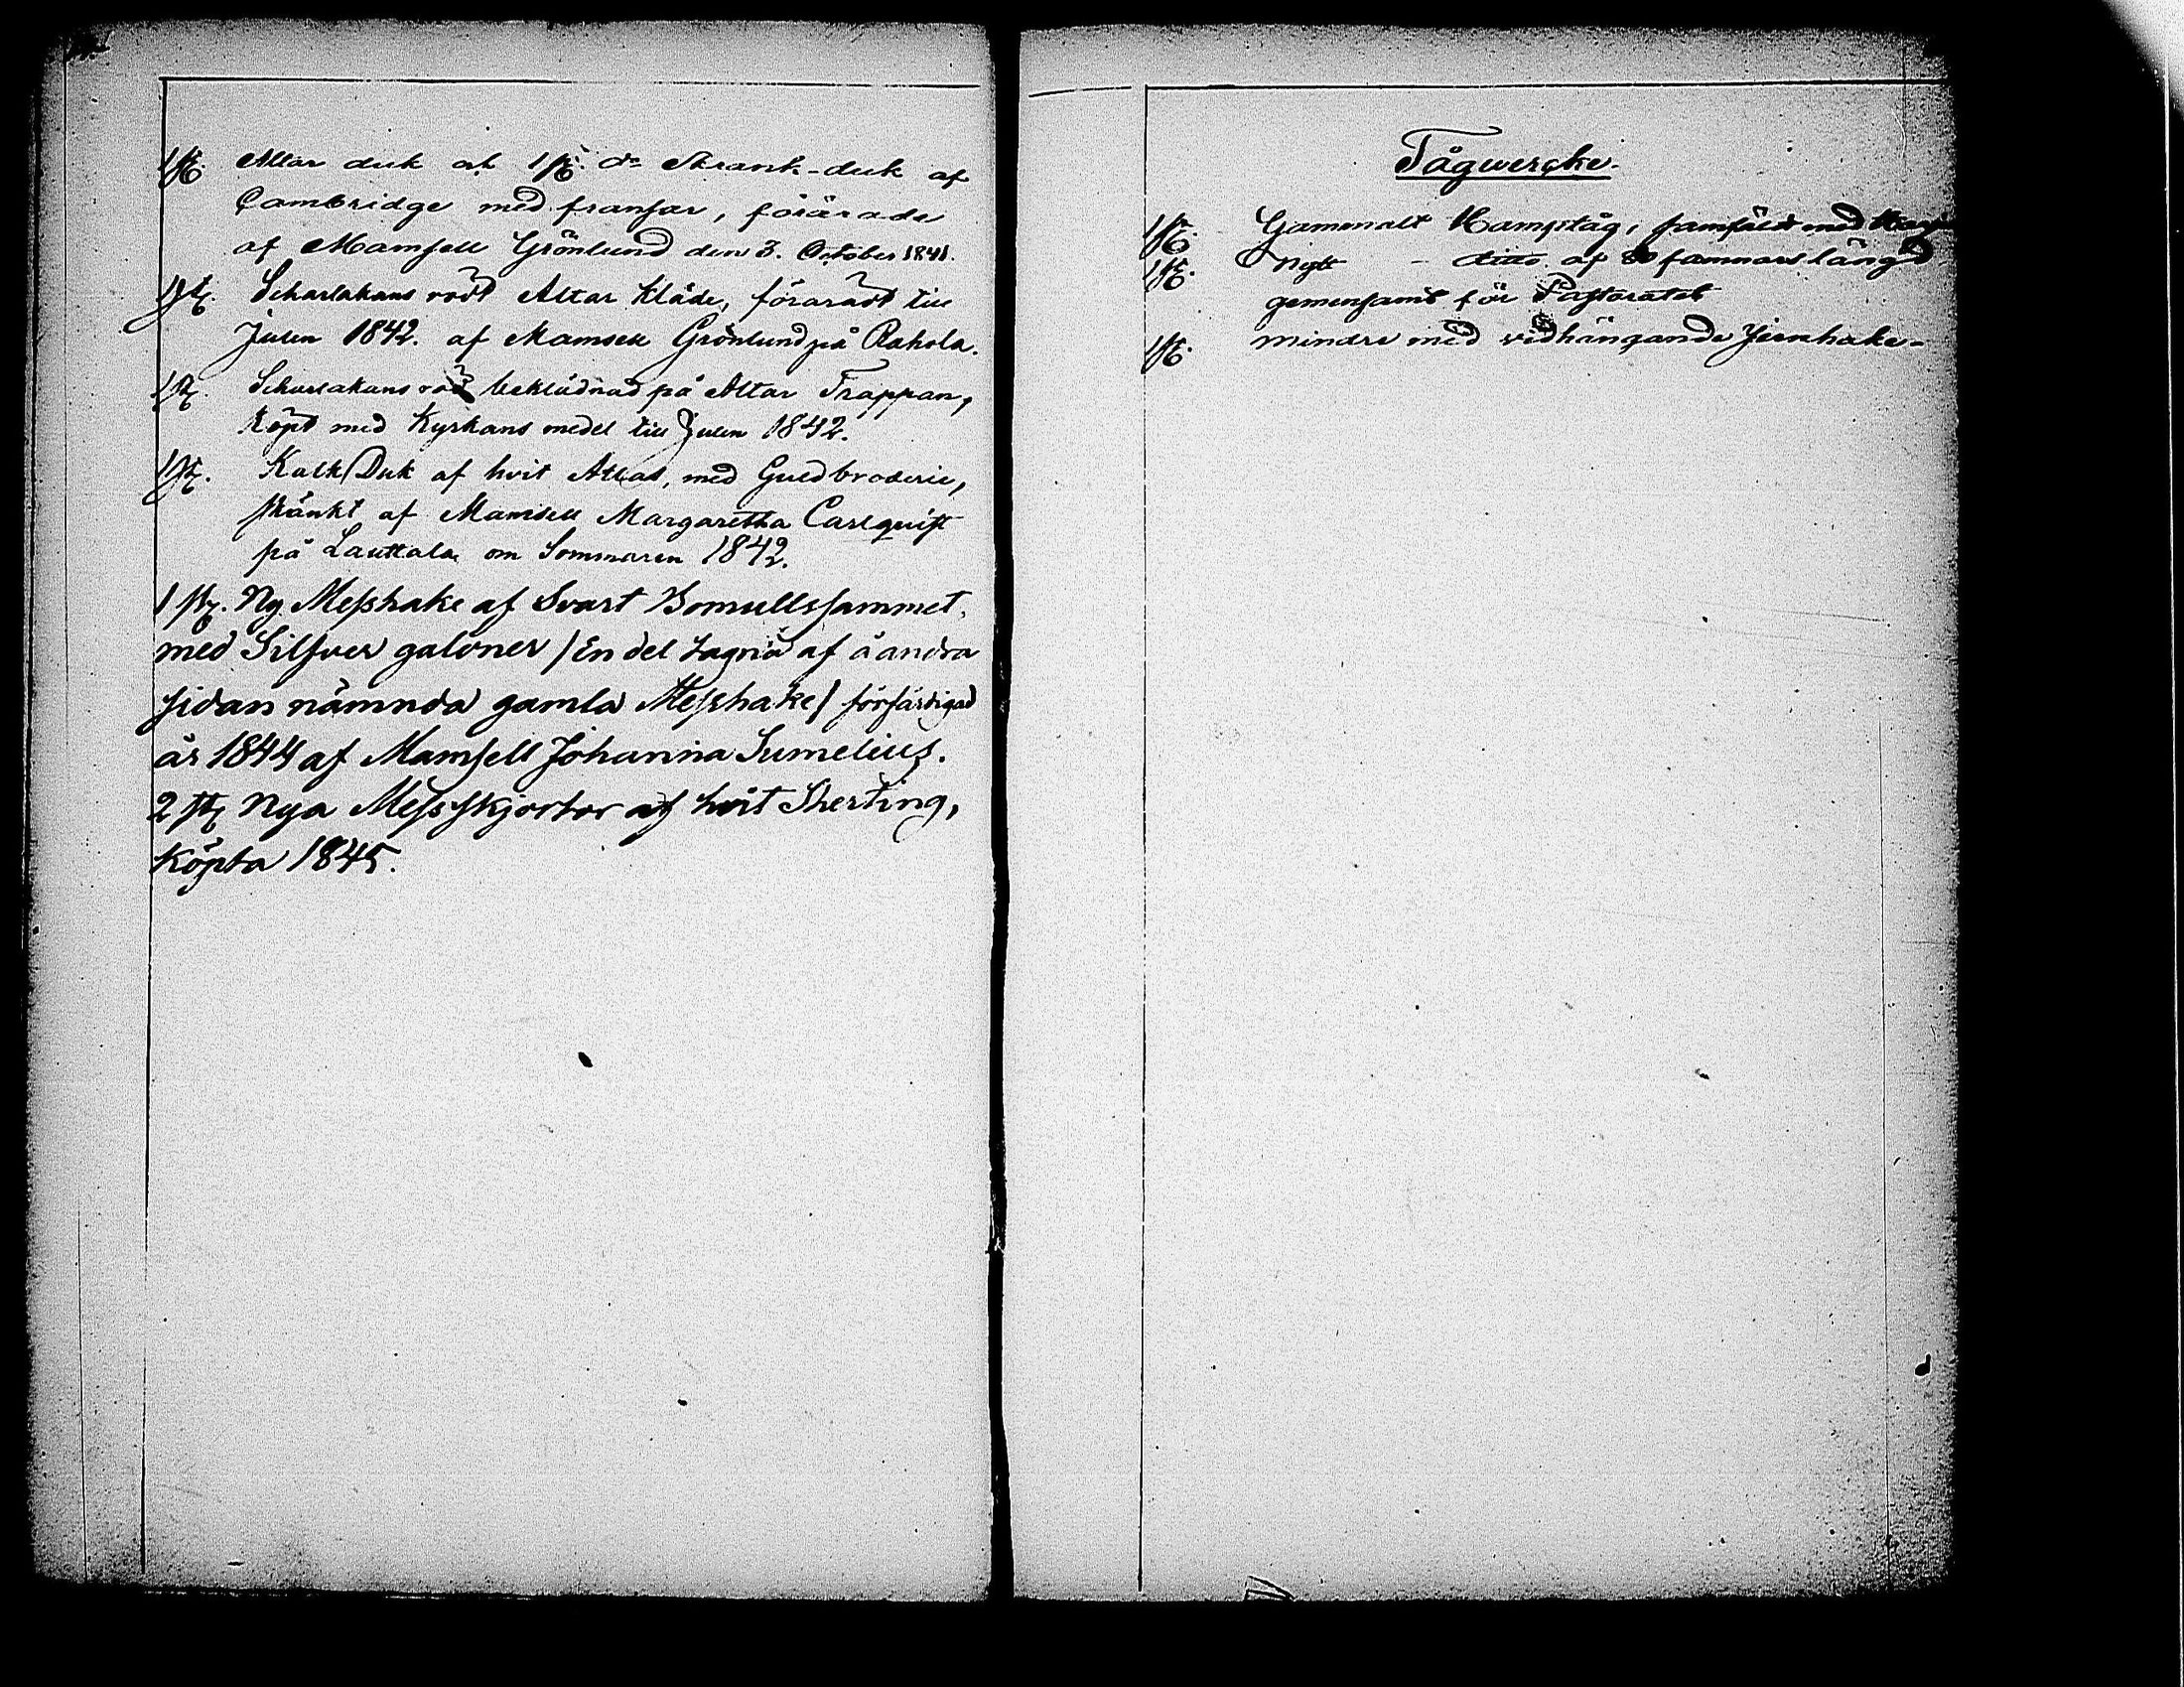 1 st. Altar duk och 1 st. do Skrank-duk af
Cambridge med fransar, förärade
af Mamsell Grönlund den 3. October 1841.
1 st. Scharlakans rödt Altar kläde, föräradt till
Julen 1842. af Mamsell Grönlund på Rahola.
1 st. Scharlakans röd beklädnad på Altar Trappan,
köpt med Kyrkans medel till Julen 1842.
1 st. Kalk Duk af hvit Atlas, med Guldbroderie,
skänkt af Mamsell Margaretha Carlqvist
på Lauttala om Sommaren 1842.
1 st. Ny Messhake af Svart Bomullssammet,
med Silfver galoner / En del tagna af å andra
sidan nämnda gamla Messhake / förfärdigad
år 1844 af Mamsell Johanna Sumelius.
2 st. Nya Messskjortor af hvit Sherting,
köpta 1845.
Tågwercke.
1 st. Gammalt Hampståg, samfäldt med
1 st. Nytt - ditto af famnars längd
gemensamt för Pastoratet
1 st. mindre med vidhängande Jernhake-